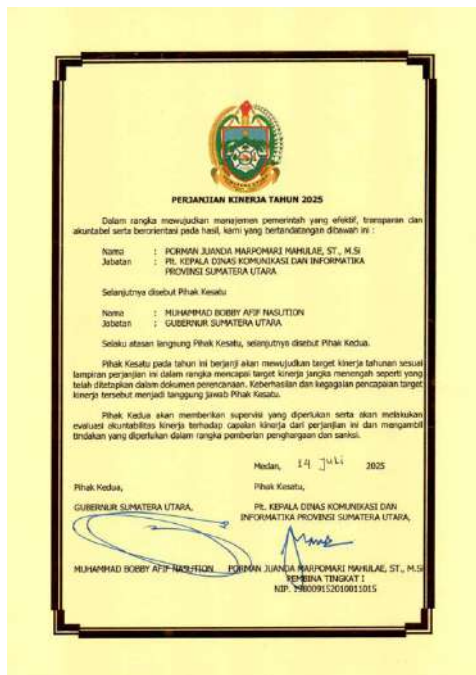 PERJANJIAN KINERJA TAHUN 2025
Dalam rangka mewujudkan manajemen pemerintah yang efektif, transparan dan
akuntabel serta berorientasi pada hasil, kami yang bertandatangan dibawah ini :
Nama : PORMAN JUANDA MARPOMARI MAHULAE, ST., M.Si
Jabatan : Plt. KEPALA DINAS KOMUNIKASI DAN INFORMATIKA
PROVINSI SUMATERA UTARA
Selanjutnya disebut Pihak Kesatu
Nama : MUHAMMAD BOBBY AFIF NASUTION
Jabatan : GUBERNUR SUMATERA UTARA
Selaku atasan langsung Pihak Kesatu, selanjutnya disebut Pihak Kedua.
Pihak Kesatu pada tahun ini berjanji akan mewujudkan target kinerja tahunan sesuai
lampiran perjanjian ini dalam rangka mencapai target kinerja jangka menengah seperti yang
telah ditetapkan dalam dokumen perencanaan. Keberhasilan dan kegagalan pencapaian target
kinerja tersebut menjadi tanggung jawab Pihak Kesatu.
Pihak Kedua akan memberikan supervisi yang diperlukan serta akan melakukan
evaluasi akuntabilitas kinerja terhadap capaian kinerja dari perjanjian ini dan mengambil
tindakan yang diperlukan dalam rangka pemberian penghargaan dan sanksi.
Medan, 14 Juli 2025
Pihak Kedua, Pihak Kesatu,
GUBERNUR SUMATERA UTARA, Plt. KEPALA DINAS KOMUNIKASI DAN
INFORMATIKA PROVINSI SUMATERA UTARA,
MUHAMMAD BOBBY AFIF NASUTION PORMAN JUANDA MARPOMARI MAHULAE, ST., M.Si
PEMBINA TINGKAT I
NIP. 198009152010011015